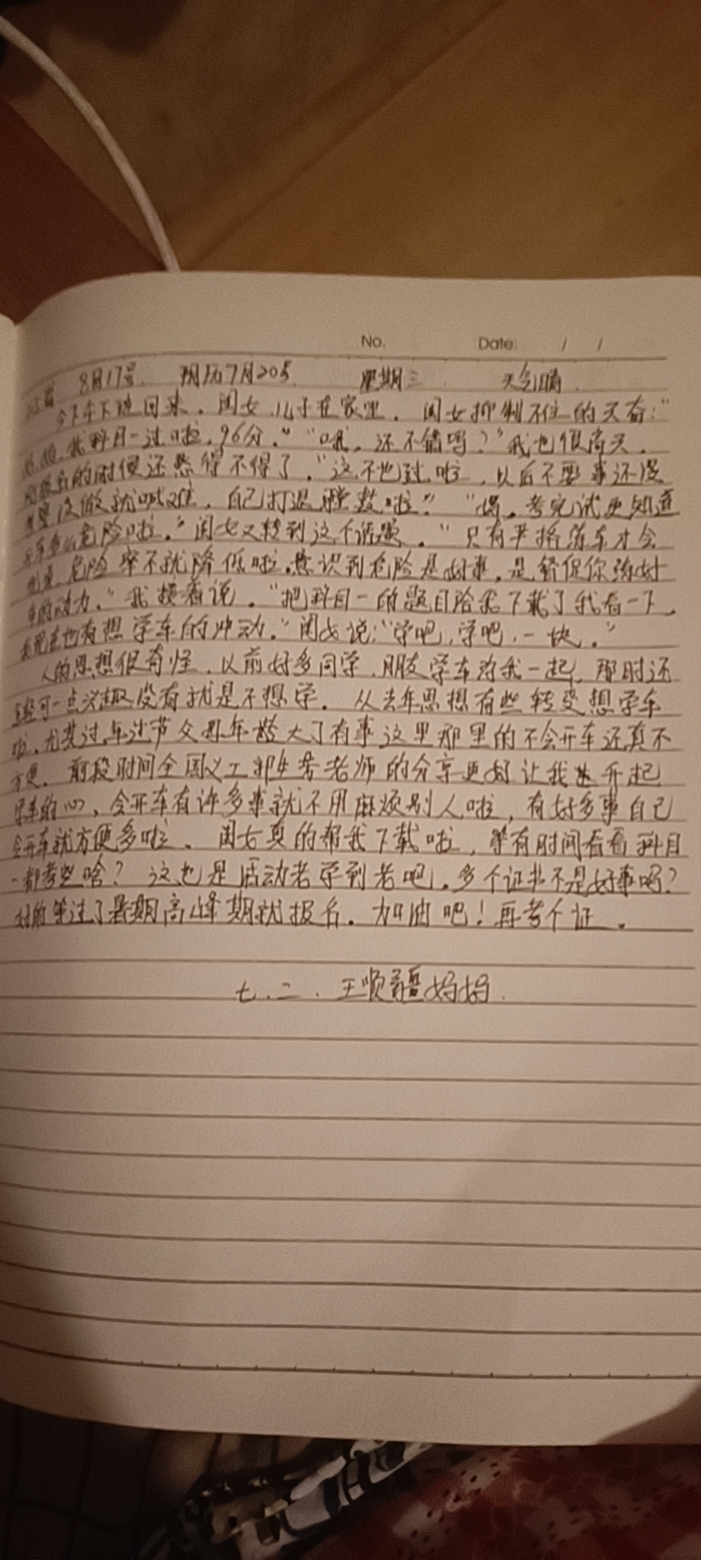 No. Date: / /
8月17号 阴历7月20 星期三 天气晴
今下午下班回来,闺女,儿子在家里,闺女抑制不住的笑着:“
妈,妈,我科目一过啦,96分。”“哦,还不错吗?”我也很高兴,
的时候还愁得不得了,“这不也过啦,以后不要事还没
没做就叫难,自己打退膛鼓啦”“妈,考完试更知道
开车多么危险啦。”闺女又转到这个话题。“只有严格落车才会
危险率不就降低啦,意识到危险是好事,是督促你练好
车的动力。”我接着说。“把科目一的题目给我下载了我看一下,
我现在也有想学车的冲动。”闺女说:“学吧,学吧,一块。”
人的思想很奇怪,以前好多同学,朋友学车约我一起,那时还
一点兴趣没有就是不想学。从去年思想有些转变想学车
啦,尤其过年过节父母年龄大了有事这里那里的不会开车还真不
方便。前段时间全国义工郭老师的分享更好让我燃升起
学车的心、会开车有许多事就不用麻烦别人啦,有好多事自己
会开车就方便多啦。闺女真的帮我下载啦,等有时间看看科目
一都考些啥?这也是活动老学到老吧。多个证书不是好事吗?
对的等过了暑期高峰期就报名。加油吧!再考个证。
七.二.王顺疆妈妈.